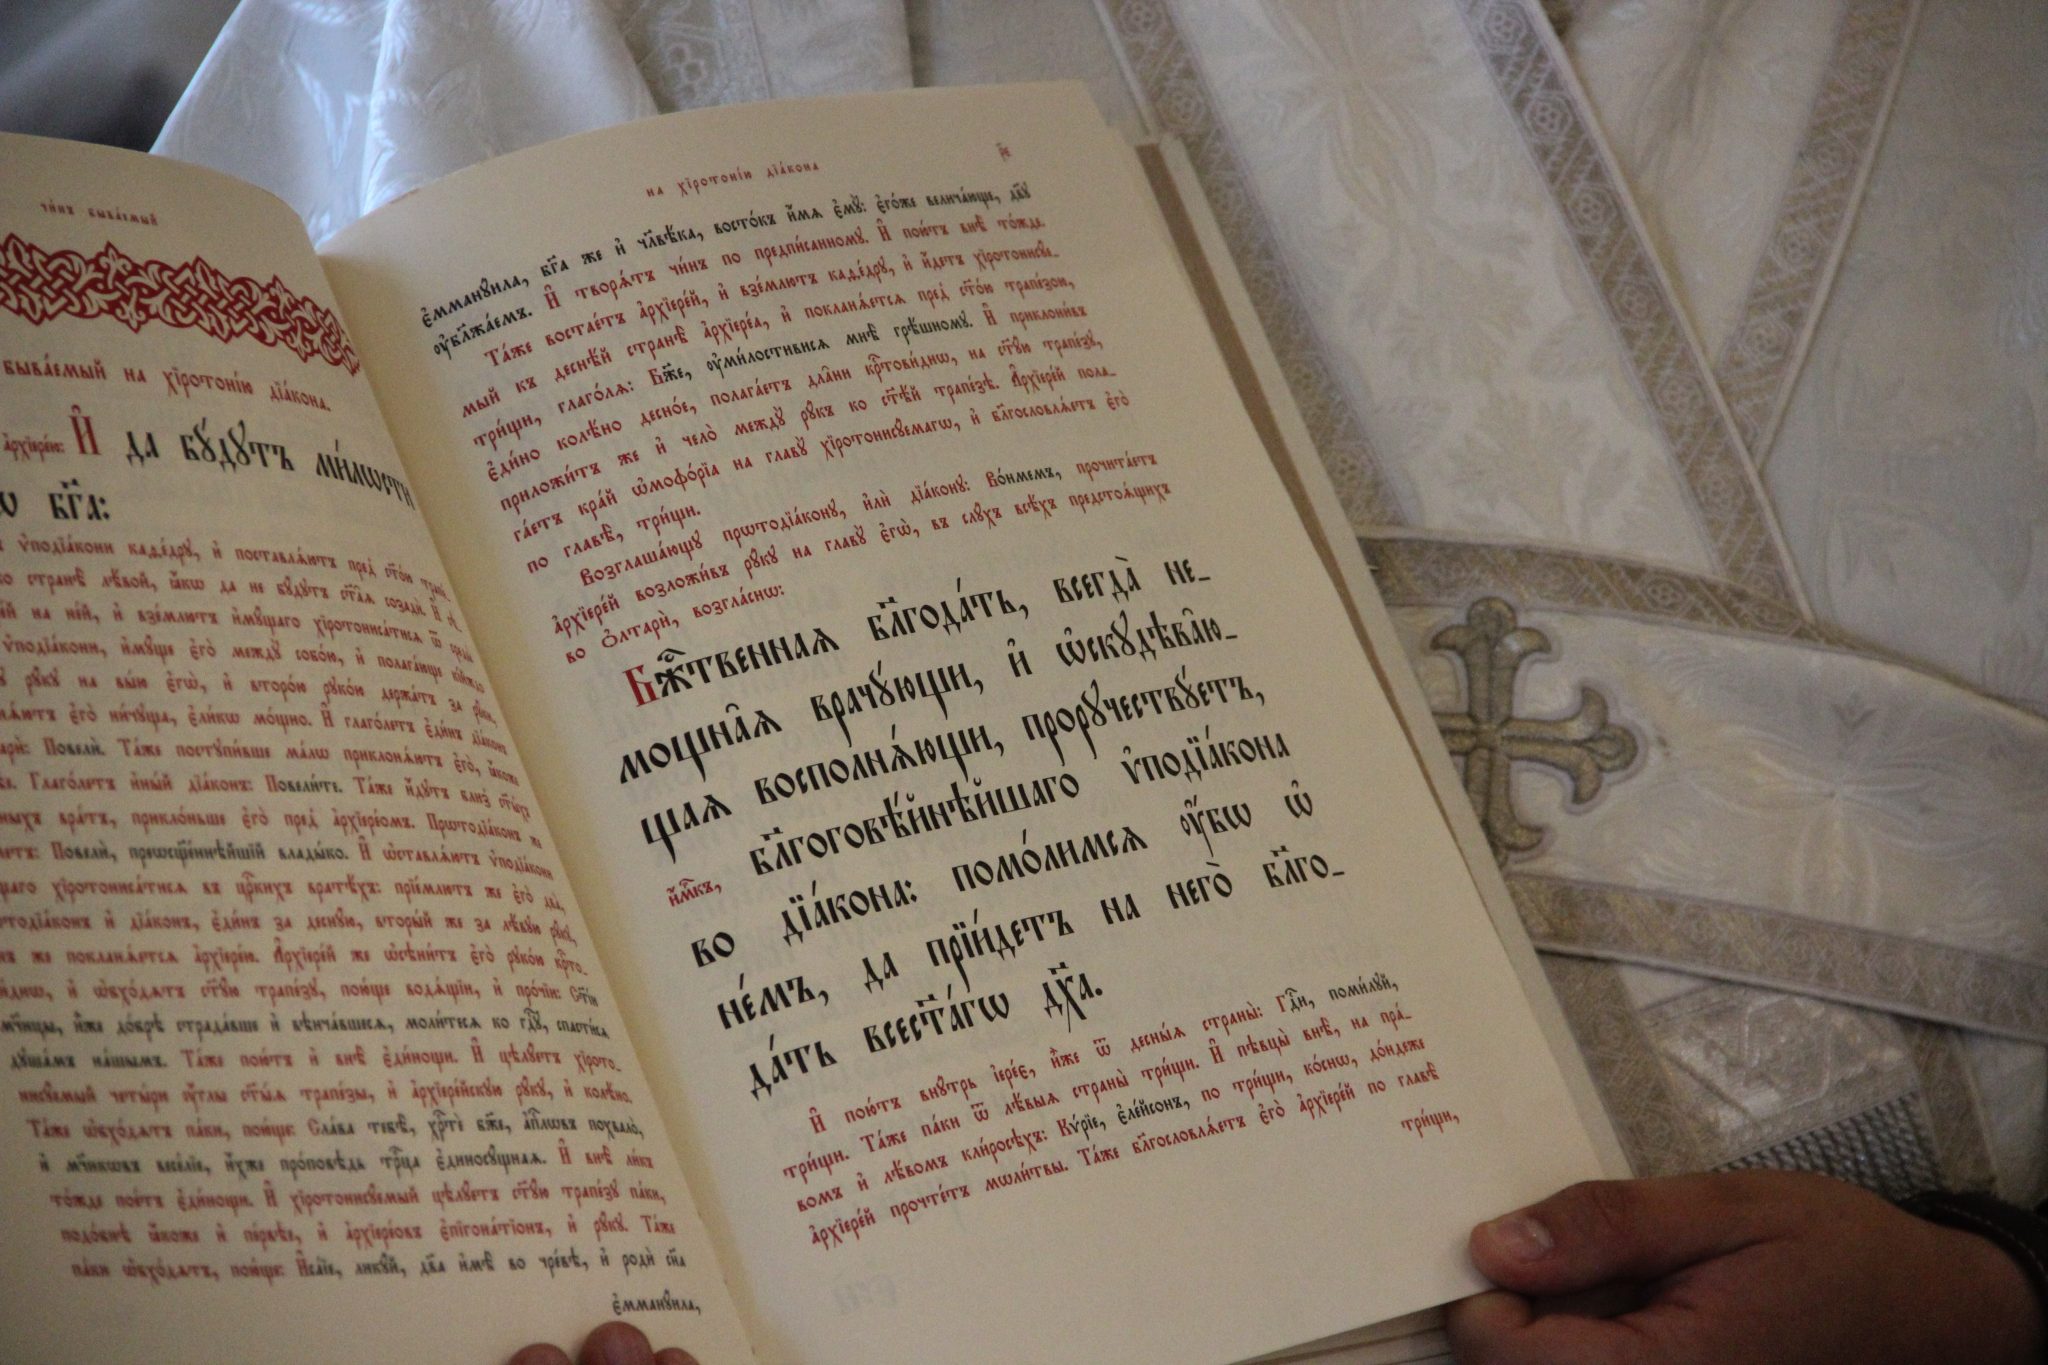 чи́нъ быва́емый
быва́емый на хїротоні́ю дїа́кона.
а҆рхїере́ю: И҆ да бꙋ́дꙋтъ ми́лѡсти
бг҃а:
ѵ҆подїа́кони каѳе́дрꙋ, и҆ поставлѧ́ютъ пред̾ ст҃о́ю
странѣ̀ лѣ́вой, ꙗ҆́кѡ да не бꙋ́дꙋтъ ст҃а̑ѧ созадѝ. И҆
на не́й, и҆ взе́млютъ и҆мꙋ́щаго хїротониса́тисѧ ѿ
ѵ҆подїа́кони, и҆мꙋ́ще его̀ междꙋ̀ собо́ю, и҆ полага́юще
рꙋ́кꙋ на вы́ю є҆гѡ̀, и҆ второ́ю рꙋко́ю держа́тъ за рꙋ́ки,
є҆го̀ ни́чꙋща, є҆ли́кѡ мо́щно. И҆ глаго́летъ є҆ди́нъ дїа́конъ
Повелѝ. Та́же постꙋпи́вше ма́лѡ приклонѧ́ютъ є҆го̀, ꙗ҆́коже
Глаго́летъ и҆ны́й дїа́конъ: Повели́те. Та́же и҆́дꙋтъ близ̾ ст҃ы́хъ
вра́тъ, прикло́ньше є҆го̀ пред̾ а҆рхїере́омъ. Прѡтодїа́конъ же
Повелѝ, преѡсщ҃е́ннѣйшїй влады́ко. И҆ ѡ҆ставлѧ́ютъ ѵ҆подїа́кони
хїротониса́тисѧ въ цр҃кихъ вратѣ́хъ: прїе́млютъ же є҆го̀ два̀,
и҆ дїа́конъ, є҆ди́нъ за деснꙋ́ю, вторы́й же за лѣ́вꙋю рꙋ́кꙋ,
же покланѧ́етсѧ а҆рхїере́ю. А҆рхїере́й же ѡ҆сѣни́тъ є҆го̀ рꙋко́ю крⷭ҇то-
и҆ ѡ҆бхо́дѧтъ ст҃ꙋ́ю трапе́зꙋ, пою́ще водѧ́щїи, и҆ про́чїи: Ст҃і́и
мч҃нцы, и҆̀же до́брѣ страда́вше и҆ вѣнча́вшесѧ, моли́тесѧ ко гдⷭ҇ꙋ, спасти́сѧ
дꙋша́мъ на́шымъ. Та́же пою́тъ и҆ внѣ̀ є҆ди́ною. И҆ цѣлꙋ́етъ хїрото-
нисꙋ́емый четы́ри ᲂу҆́глы ст҃ы́ѧ трапе́зы, и҆ а҆рхїере́йскꙋю рꙋ́кꙋ, и҆ колѣ́но.
Та́же ѡ҆бхо́дѧтъ па́ки, пою́ще: Сла́ва тебѣ̀, хрⷭ҇тѐ бж҃е, а҆пⷭ҇лѡвъ похвало̀,
и҆ мч҃никѡвъ весе́лїе, и҆́хже про́повѣдь трⷪ҇ца є҆диносꙋ́щнаѧ. И҆ внѣ̀ ли́къ
то́жде пое́тъ є҆ди́ною. И҆ хїротонисꙋ́емый цѣлꙋ́етъ ст҃ꙋ́ю трапе́зꙋ па́ки,
подо́бнѣ ꙗ҆́коже и҆ пе́рвѣе, и҆ а҆рхїере́овъ є҆пїгона́тїонъ, и҆ рꙋ́кꙋ. Та́же
па́ки ѡ҆бхо́дѧтъ, пою́ще: И҆са́їе, ликꙋ́й, дв҃а и҆мѣ̀ во чре́вѣ, и҆ родѝ сн҃а
є҆мманꙋи́ла,
на хїротоні́ю дїа́кона
р҃е
є҆мманꙋи́ла, бг҃а же и҆ чл҃вѣ́ка, восто́къ и҆́мѧ є҆мꙋ̀: є҆го́же велича́юще, дв҃ꙋ
ᲂу҆бл҃жа́емъ. И҆ творѧ́тъ чи́нъ по предпи́санномꙋ. И҆ пою́тъ внѣ̀ то́жде.
Та́же востае́тъ а҆рхїере́й, и҆ взе́млютъ каѳе́дрꙋ, и҆ и҆́детъ хїротонисꙋ́е-
мый къ деснѣ́й странѣ̀ а҆рхїере́а, и҆ покланѧ́етсѧ пред̾ ст҃о́ю трапе́зою,
три́щи, глаго́лѧ: Бж҃е, ᲂу҆ми́лостивисѧ мнѣ̀ грѣ́шномꙋ. И҆ приклони́въ
є҆ди́но колѣ́но десно́е, полага́етъ дла̑ни крⷭ҇тови́днѡ, на ст҃ꙋ́ю трапе́зꙋ,
приложи́тъ же и҆ чело̀ междꙋ̀ рꙋ́къ ко ст҃ѣ́й трапе́зѣ. А҆рхїере́й пола-
га́етъ кра́й ѡ҆мофо́рїа на главꙋ̀ хїротонисꙋ́емагѡ, и҆ бл҃гословлѧ́етъ є҆го̀
по главѣ̀, три́щи.
Возглаша́ющꙋ прѡтодїа́конꙋ, и҆лѝ дїа́конꙋ: Во́нмемъ, прочита́етъ
а҆рхїере́й возложи́въ рꙋ́кꙋ на главꙋ̀ є҆гѡ̀, въ слꙋ́хъ всѣ́хъ предстоѧ́щихъ
во ѻ҆лтарѝ, возгла́снѡ:
Бжⷭ҇твенная бл҃года́ть, всегда̀ не-
мощна̑ѧ врачꙋ́ющи, и҆ ѡ҆скꙋдѣва̑ю-
щаѧ восполнѧ́ющи, прорꙋчествꙋ́етъ,
и҆́мкъ, бл҃гоговѣ́йнѣйшаго ѵ҆подїа́кона
во дїа́кона: помо́лимсѧ ᲂу҆̀бѡ ѡ҆
не́мъ, да прїи́детъ на него̀ бл҃го-
да́ть всест҃а́гѡ дх҃а.
И҆ пою́тъ внꙋ́трь і҆ере́є, и҆̀же ѿ десны́ѧ страны̀: Гдⷭ҇и, поми́лꙋй,
три́щи. Та́же па́ки ѿ лѣ́выѧ страны̀ три́щи. И҆ пѣвцы̀ внѣ̀, на пра́-
вомъ и҆ лѣ́вомъ кли́росѣхъ: Кѵ́рїе, є҆ле́йсонъ, по три́щи, ко́снѡ, до́ндеже
а҆рхїере́й прочте́тъ мѡли́твы. Та́же бл҃гословлѧ́етъ є҆го̀ а҆рхїере́й по главѣ̀
три́щи,